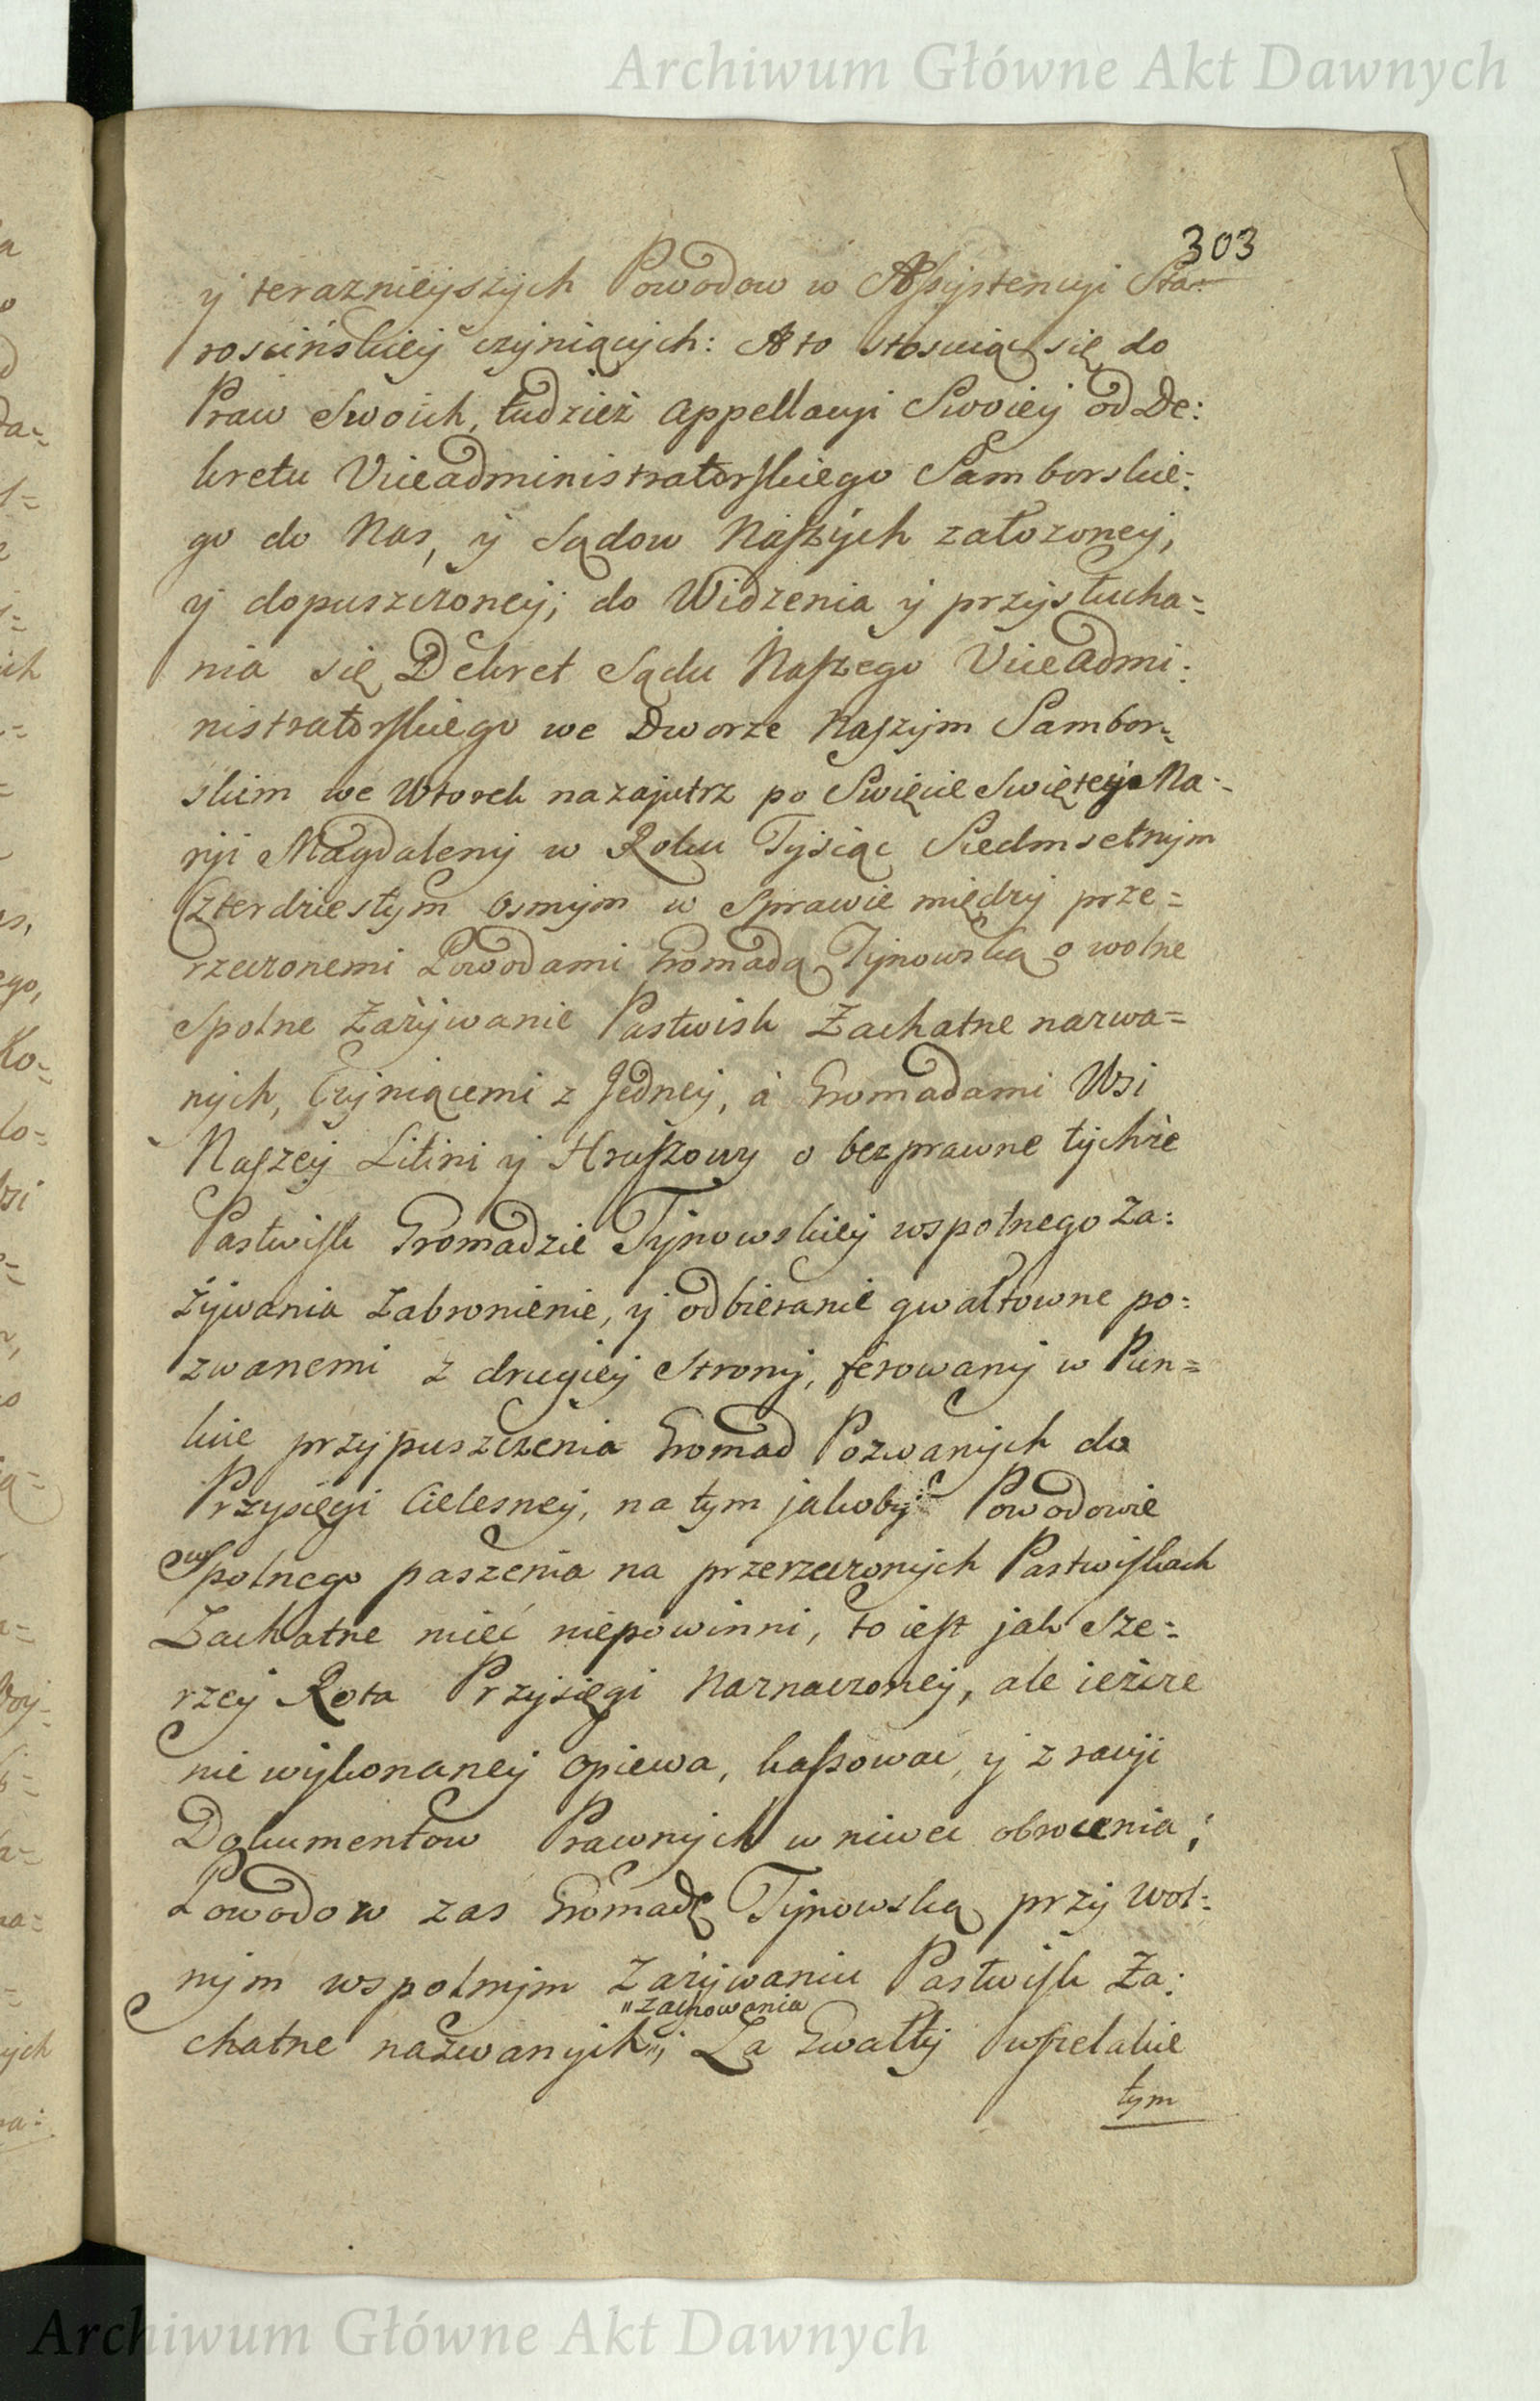 Archiwum Główne Akt Dawnych
303
y teraznieyszych Powodow w Assystencyi Sta-
roscińskiey czyniących: A to stosuiąc się do
Praw Swoich, tudzież Appellacyi Swoiey od De:
kretu Viceadministratorskiego Samborskie:
go do Nas, y Sądow Naszych załozoney,
y dopuszczoney; do Widzenia y przysłucha=
nia się Dekret Sądu Naszego Viceadmi:
nistratorskiego we Dworze Naszym Sambor=
skim we Wtorek nazajutrz po Swięcie Swiętey Ma=
ryi Magdaleny w Roku Tysiąc Siedmsetnym
Czterdziestym Osmym w Sprawie między prze=
rzeczonemi Powodami Gromadą Tynowską o wolne
Spolne Zażywanie Pastwisk Zachatne nazwa=
nych, Czyniącemi z Jedney, à Gromadami Wsi
Naszey Litini y Hruszowy o bezprawne tychże
Pastwisk Gromadzie Tynowskiey wspolnego Za:
żywania Zabronienie, y odbieranie gwałtowne po:
zwanemi z drugiey Strony, ferowany w Pun=
kcie przypuszczenia Gromad Pozwanych do
Przysięgi Cielesney, na tym jakoby Powodowie
wspolnego paszenia na przerzeczonych Pastwiskach
Zachatne mieć niepowinni, to iest jak Sze=
rzey Rota Przysięgi Naznaczoney, ale ieżcze
nie wykonaney opiewa, kassować y z racyi
Dokumentow Prawnych w niwec obrocenia;
Powodow zas Gromadę Tynowską przy wol:
nym wspolnym Zażywaniu Pastwisk Za:
"Zachowania
chatne nazwanych"; Za Gwałty wszelakie
tym
Archiwum Główne Akt Dawnych